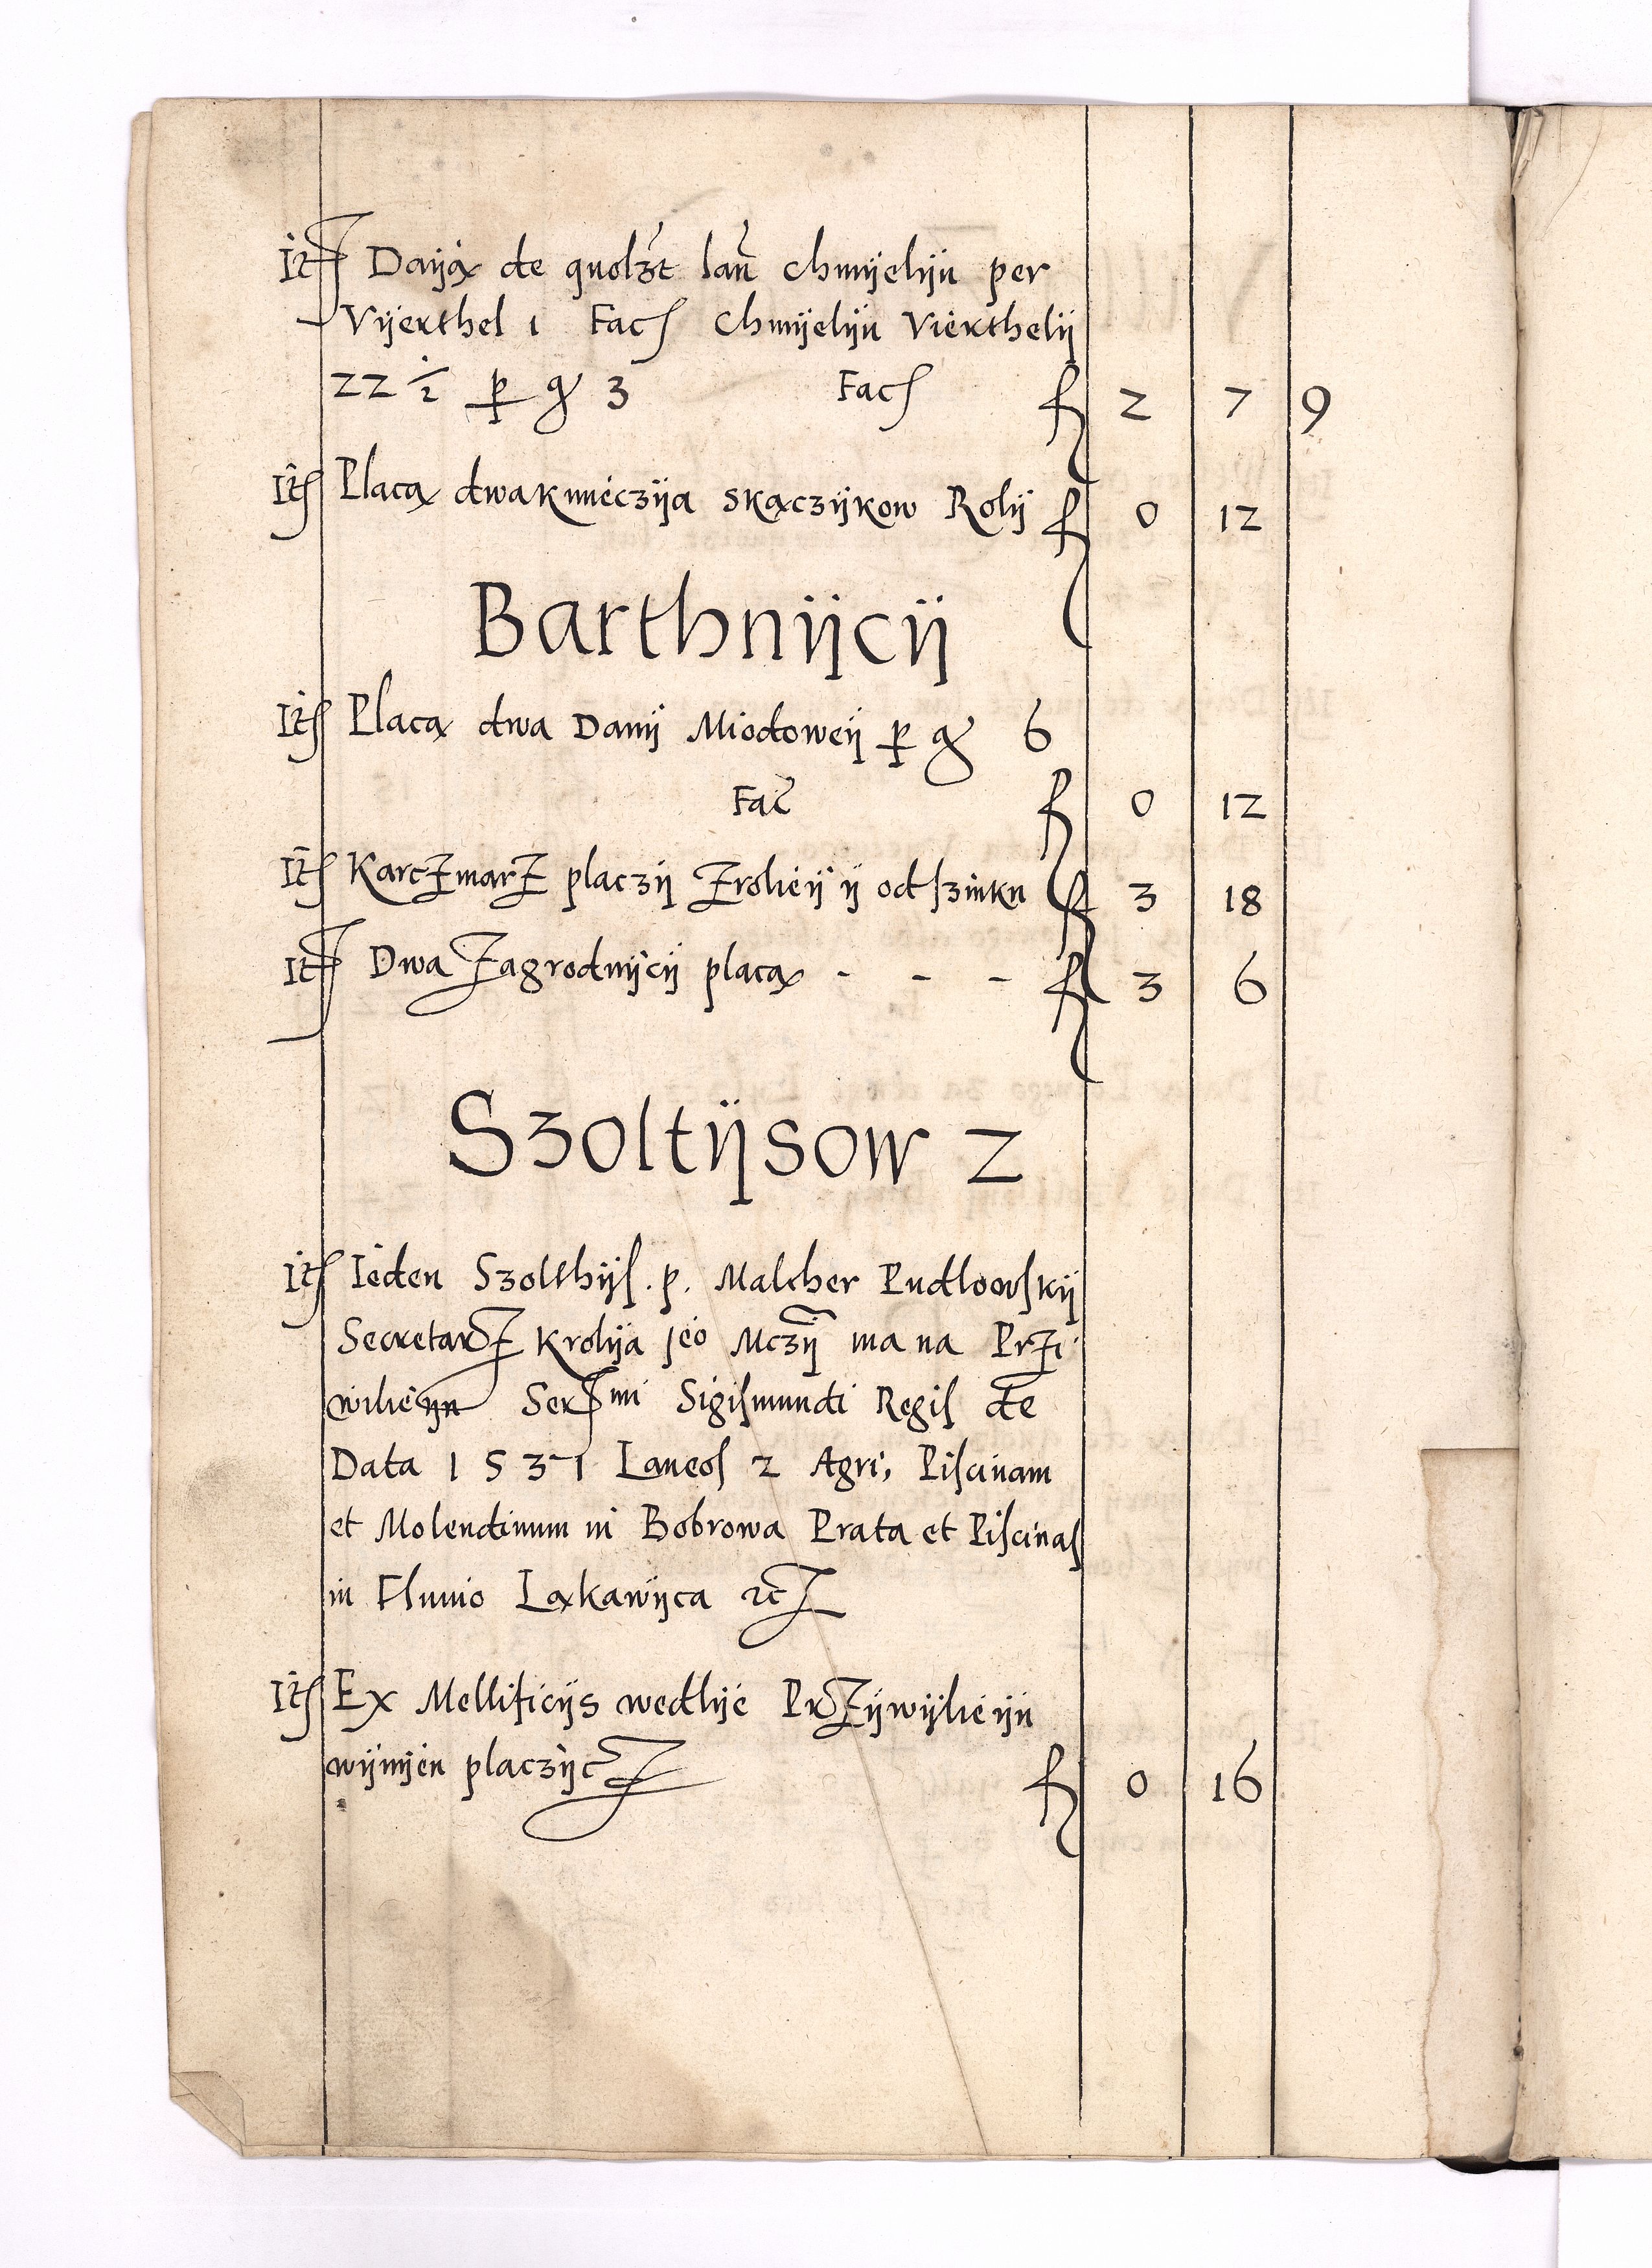 It Dayą de quolzt lan chmyelyu per
Vyerthel 1 Fac chmyelyu Vierthely
22 ½ p gr 3 Fac f 2 7 9
It Placą dwa kmieczya skączykow Roly f 0 12
Barthnycy
It Placą dwa Dany Miodowey p gr 6
Fac f 0 12
It Karczmarz placzy zroliey y od szinku f 3 18
It Dwa Zagrodnycy placą - - - f 3 6
Szoltysow 2
It Ieden Szolthys . p. Malcher Pudlowsky
Secretarz Krolya Jeo Mczy ma na Przi
wilieyu Sermi Sigismundi Regis de
Data 1531 Laneos 2 Agri, Piscinam
et Molendinum in Bobrowa Prata et Piscinas
in Fluuio Ląkawyca etc
It Ex Mellificys wedlye Przywylieyu
wynyen placzyc f 0 16